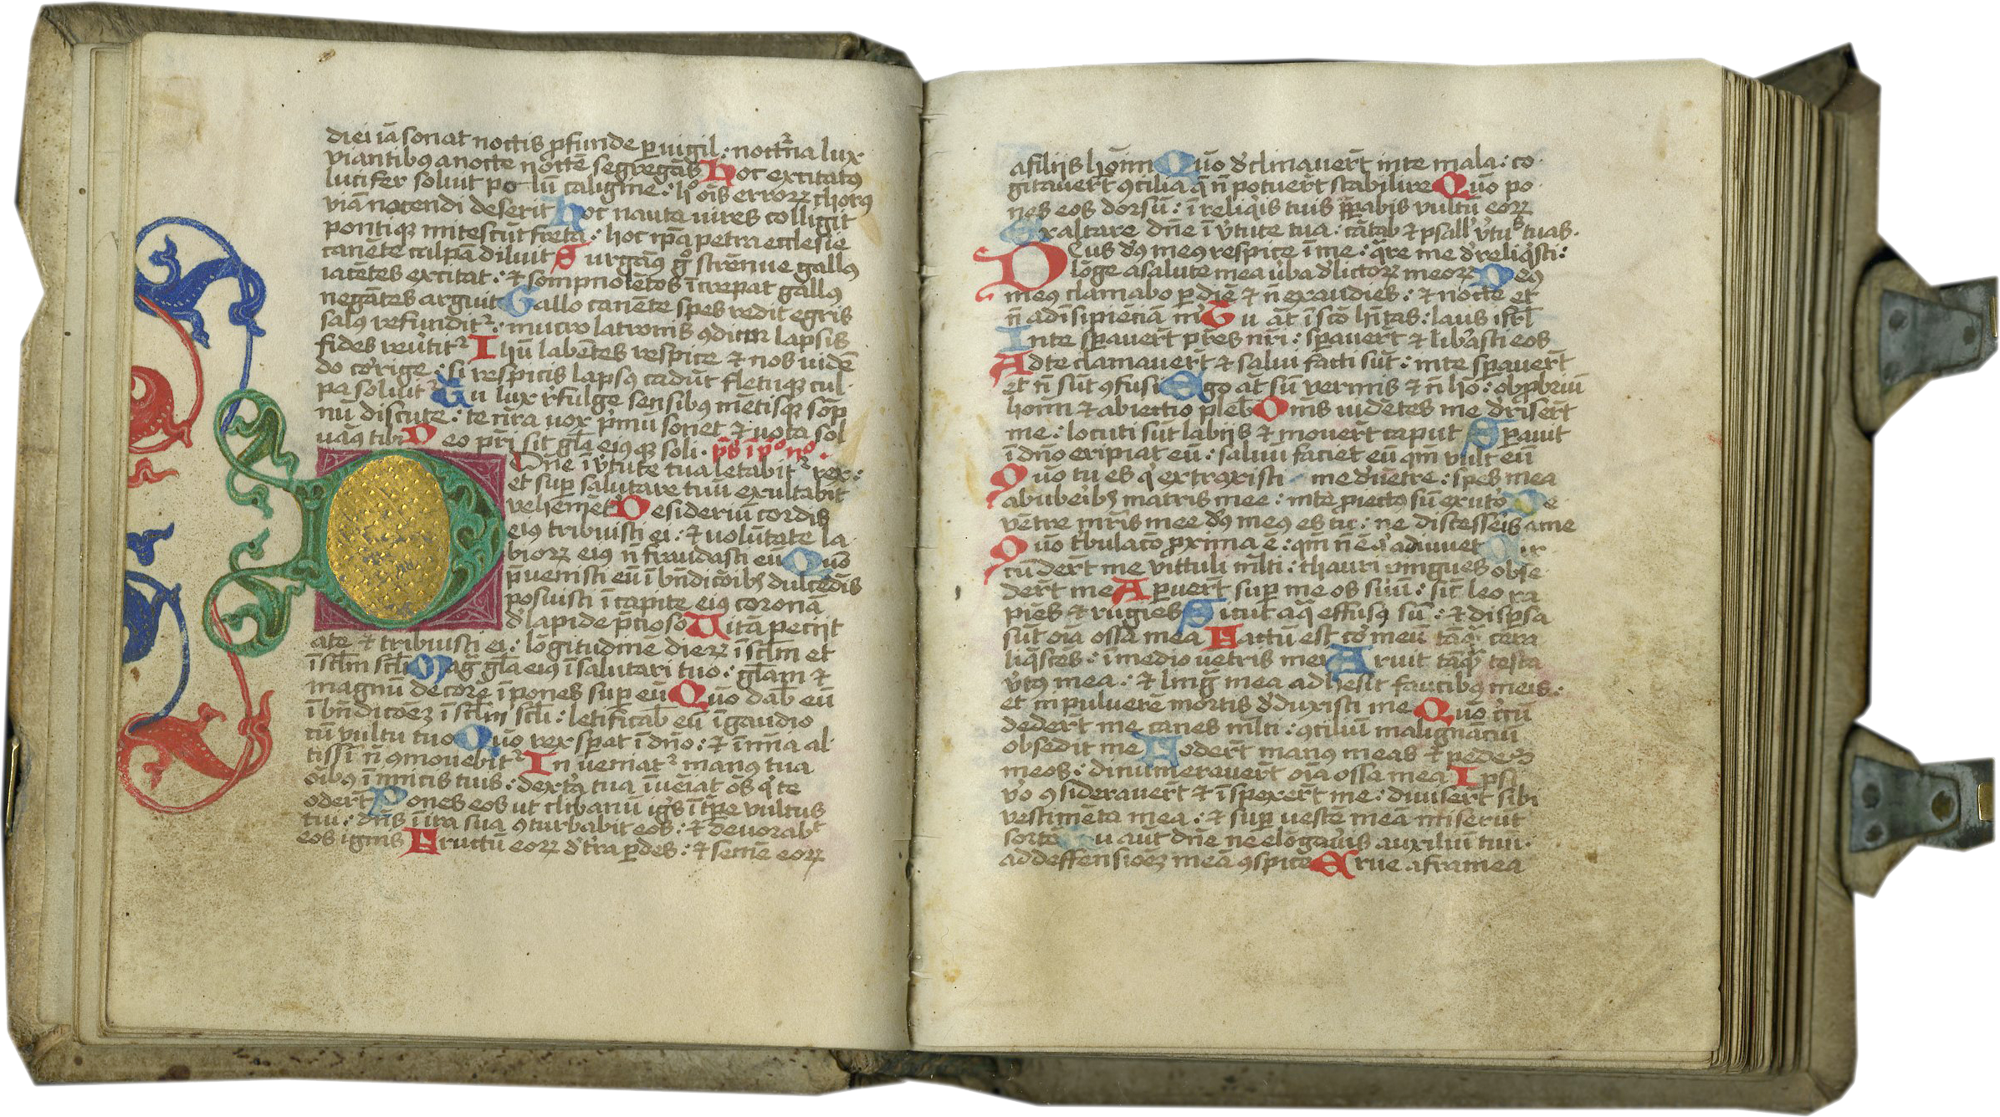 diei iā sonat noctis ꝓfunde ꝑuigil : noct̉na lux
viantibus a nocte noctē segregās Hoc excitatus
lucifer soluit polū caligine : hͦ oīs erroꝝ chorus
viā nocendi deserit Hoc nauta uires colligit
pontiqꝫ mitescūt freta : hoc ip̄a petra ecclesie
canēte culpā diluit Surgāꝰ gͦ strēnue gallus
iacētes excitat : et sompnolētos īcrepat gallus
negātes arguit Gallo canēte spes redit egris
salus refundit᷑ : mucro latronis ꝯditur lapsis
fides reūtit᷑ Ihū labētes respice et nos uidē
do corige : si respicis lapsus cadūt fletuqꝫ cul
pa soluit᷑ Tu lux rͤfulge sensibus mētisqꝫ sōp
nū discute : te nr̄a uox pͥmū sonet et uota sol
uāꝰ tibi Deo pr̄i sit gl̄a eiusqꝫ soli . p̄s ī pͦ nͦ .
Dn̄e ī ꝟtute tua letabit᷑ rex :
et suꝑ salutare tuū exultabit
vehemēt᷑ Desideriū cordis
eius tribuisti ei : et volūtate la
bioꝝ eius n̄ fraudasti eū Quō
p̄uenisti eū ī bn̄dicōibꝫ dulcedīs
posuisti ī capite eius coronā
dͤ lapide p̄cioso Uitā peciit
a te et tribuisti ei : lōgitudinē dieꝝ ī sc̄lm et
ī sc̄lm sc̄li Maḡ gl̄a eius ī salutari tuo : gl̄am et
magnū decorē īpones suꝑ eū Quō dab̄ eū
ī bn̄dicōeꝫ ī sc̄lm sc̄li : letificab̄ eū ī gaudio
cū vultu tuo Quō rex sꝑat ī dn̄o : et ī mīa al
tissī n̄ ꝯmouebit᷑ Inueniat᷑ manus tua
oībus īimicis tuis : dext̉a tua īueīat oēs qͥ te
odert̄ Pones eos ut clibanū ig̉s ī tꝑe vultus
tui : dn̄s ī ira sua ꝯturbabit eos : et deuorabt
eos ignis Fructū eoꝝ dͤ t̉ra ꝑdes : et semē eoꝝ
a filiis hoīm Quō dͤclinauert̄ in te mala : co
gitauert̄ ꝯsilia q̄ n̄ potuert̄ stabilire Quō po
nes eos dorsū : ī reliqͥis tuis p̄ꝑabis vultū eoꝝ
Exaltare dn̄e ī ꝟtute tua : cātab̄ et psall̄ ꝟtutes tuas .
Deus dͤus meus respice ī me : qͣre me dͤreliqͥsti :
lōge a salute mea ūba dͤlictoꝝ meoꝝ Deus
meus clamabo ꝑ diē et n̄ exaudies : et nocte et
n̄ ad īsipiēciā mͥ Tu āt ī sc̄o hītas : laus isrl̄
In te sꝑauert̄ pr̄es nr̄i : sꝑauert̄ et lib̉asti eos
Ad te clamauert̄ et salui facti sūt : in te sꝑauert̄
et n̄ sūt ꝯfusi Ego āt sū vermis et n̄ hō : obprͦbriū
hoīm et abiectio pleb̄ Om̄s uidētes me dͤrisert̄
me : locuti sūt labiis et mouert̄ caput Sꝑauit
ī dn̄o eripiat eū : saluū faciet eū qm̄ vult eū
Quō tu es qͥ extraxisti me dͤ uētre : spes mea
ab ubeībꝫ matris mee : in te prͦiectus sū ex utͦo De
vētre mr̄is mee dͤus meus es tu : ne discesseis a me
Quō t̉bulacō proxima ē : qm̄ n̄ ē qͥ adiuuet Cir
cūdert̄ me vittuli ml̄ti : thauri pingues obse
dert̄ me Aꝑuert̄ suꝑ me os suū : sic̄ leo ra
piēs et rugiēs Sicut aq̄ effusus sū : et disꝑsa
sūt oīa ossa mea Factū est cor meū tāqͣ cera
liq̄scēs : ī medio uētris mei Aruit tāqͣ testa
ꝟtus mea : et linḡ mea adhesit faucibus meis :
et in pulueē mortis dͤduxisti me Quō cͥcū
dedert̄ me canes ml̄ti : ꝯsiliū malignāciū
obsedit me Fodert̄ manus meas et pedes
meos : dinumerauert̄ oīa ossa mea Ipsi
vͦo ꝯsiderauert̄ et īspexert̄ me : diuisert̄ sibi
vestimēta mea : et suꝑ uestē mea miserūt
sortē Tu aut̄ dn̄e ne elōgaūis auxiliū tuū
ad deffensioeꝫ meā ꝯspice Erue a framea